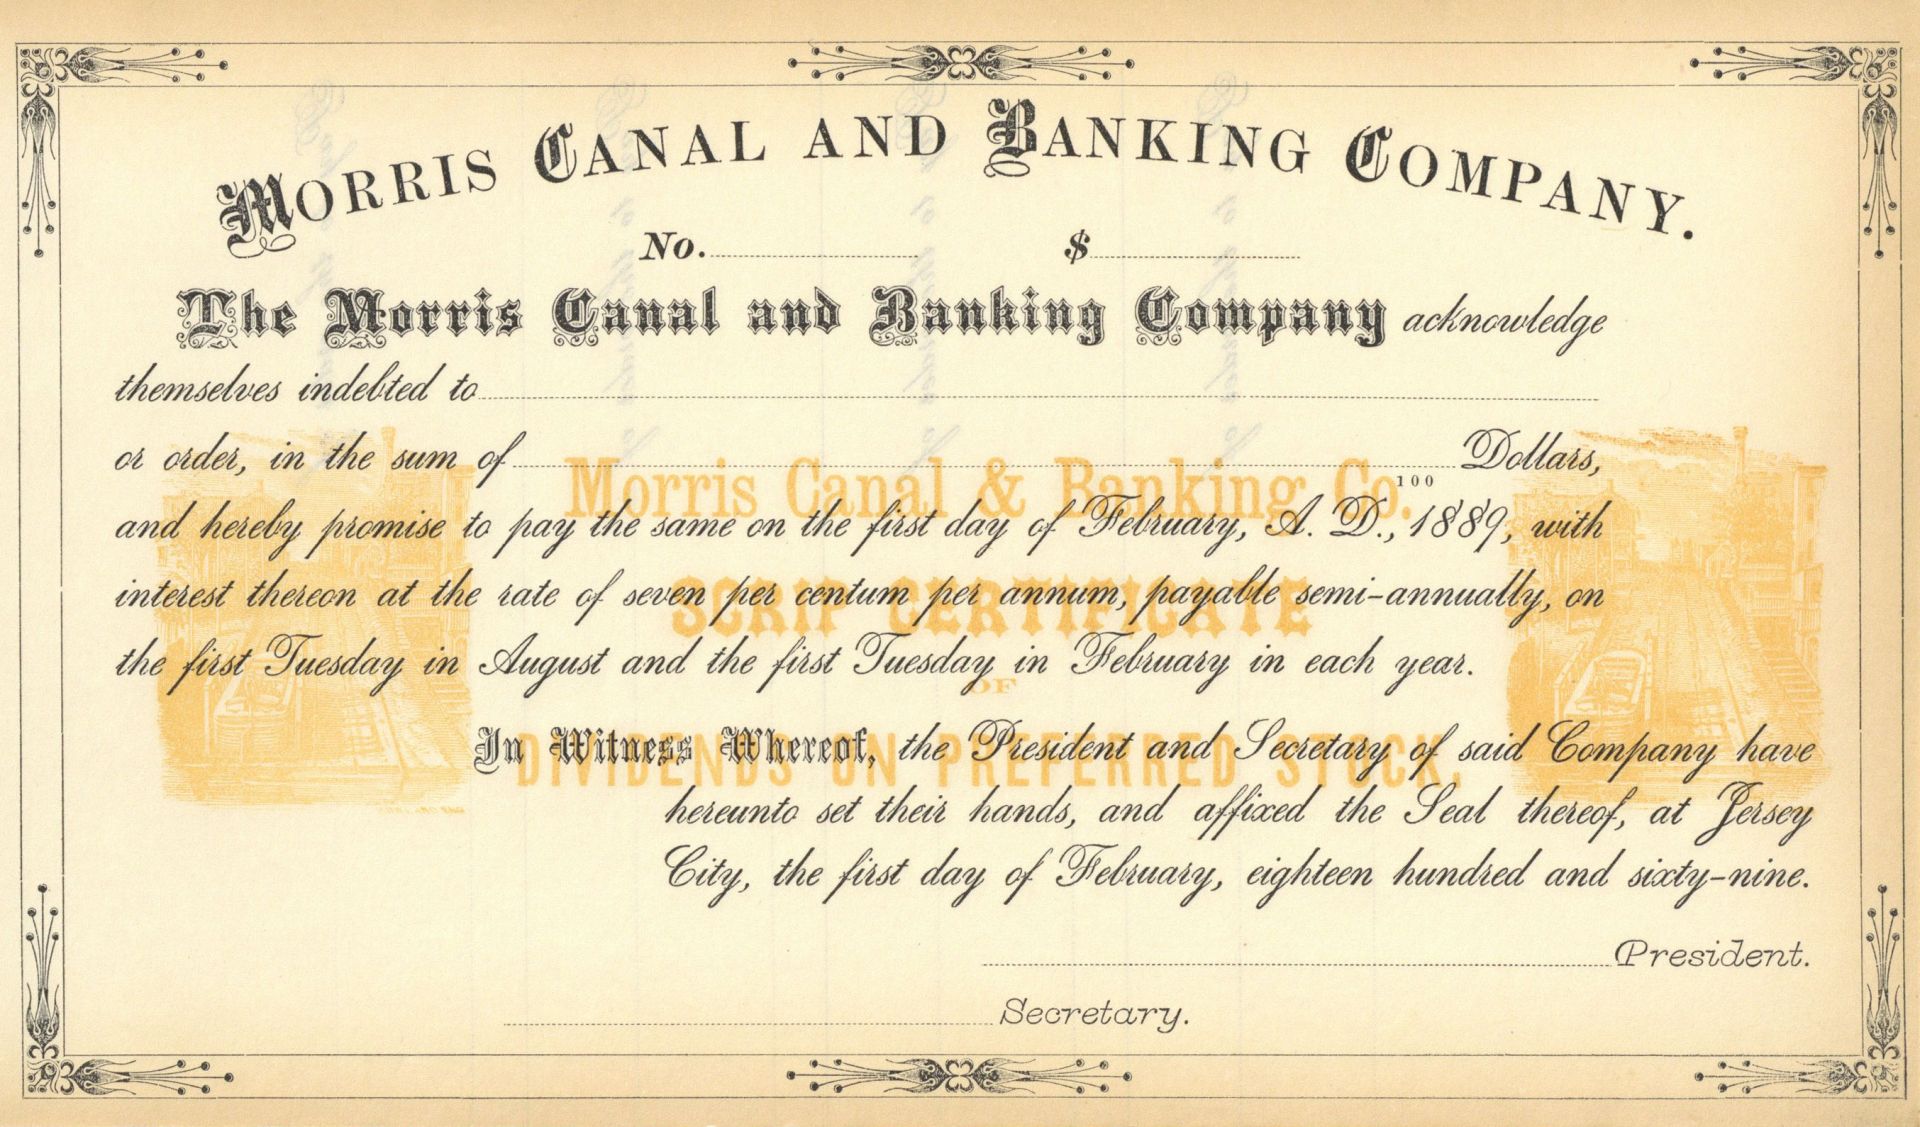 MORRIS CANAL AND BANKING COMPANY.
No. $
The Morris Canal and Banking Company acknowledge
themselves indebted to
or order, in the sum of Dollars,
100
Morris Canal & Banking Co.
and hereby promise to pay the same on the first day of February, A. D., 1889, with
interest thereon at the rate of seven per centum per annum, payable semi-annually, on
SCRIP CERTIFICATE
the first Tuesday in August and the first Tuesday in February in each year.
OF
In Witness Whereof, the President and Secretary of said Company have
DIVIDENDS ON PREFERRED STOCK,
hereunto set their hands, and affixed the Seal thereof, at Jersey
City, the first day of February, eighteen hundred and sixty-nine.
President.
Secretary.